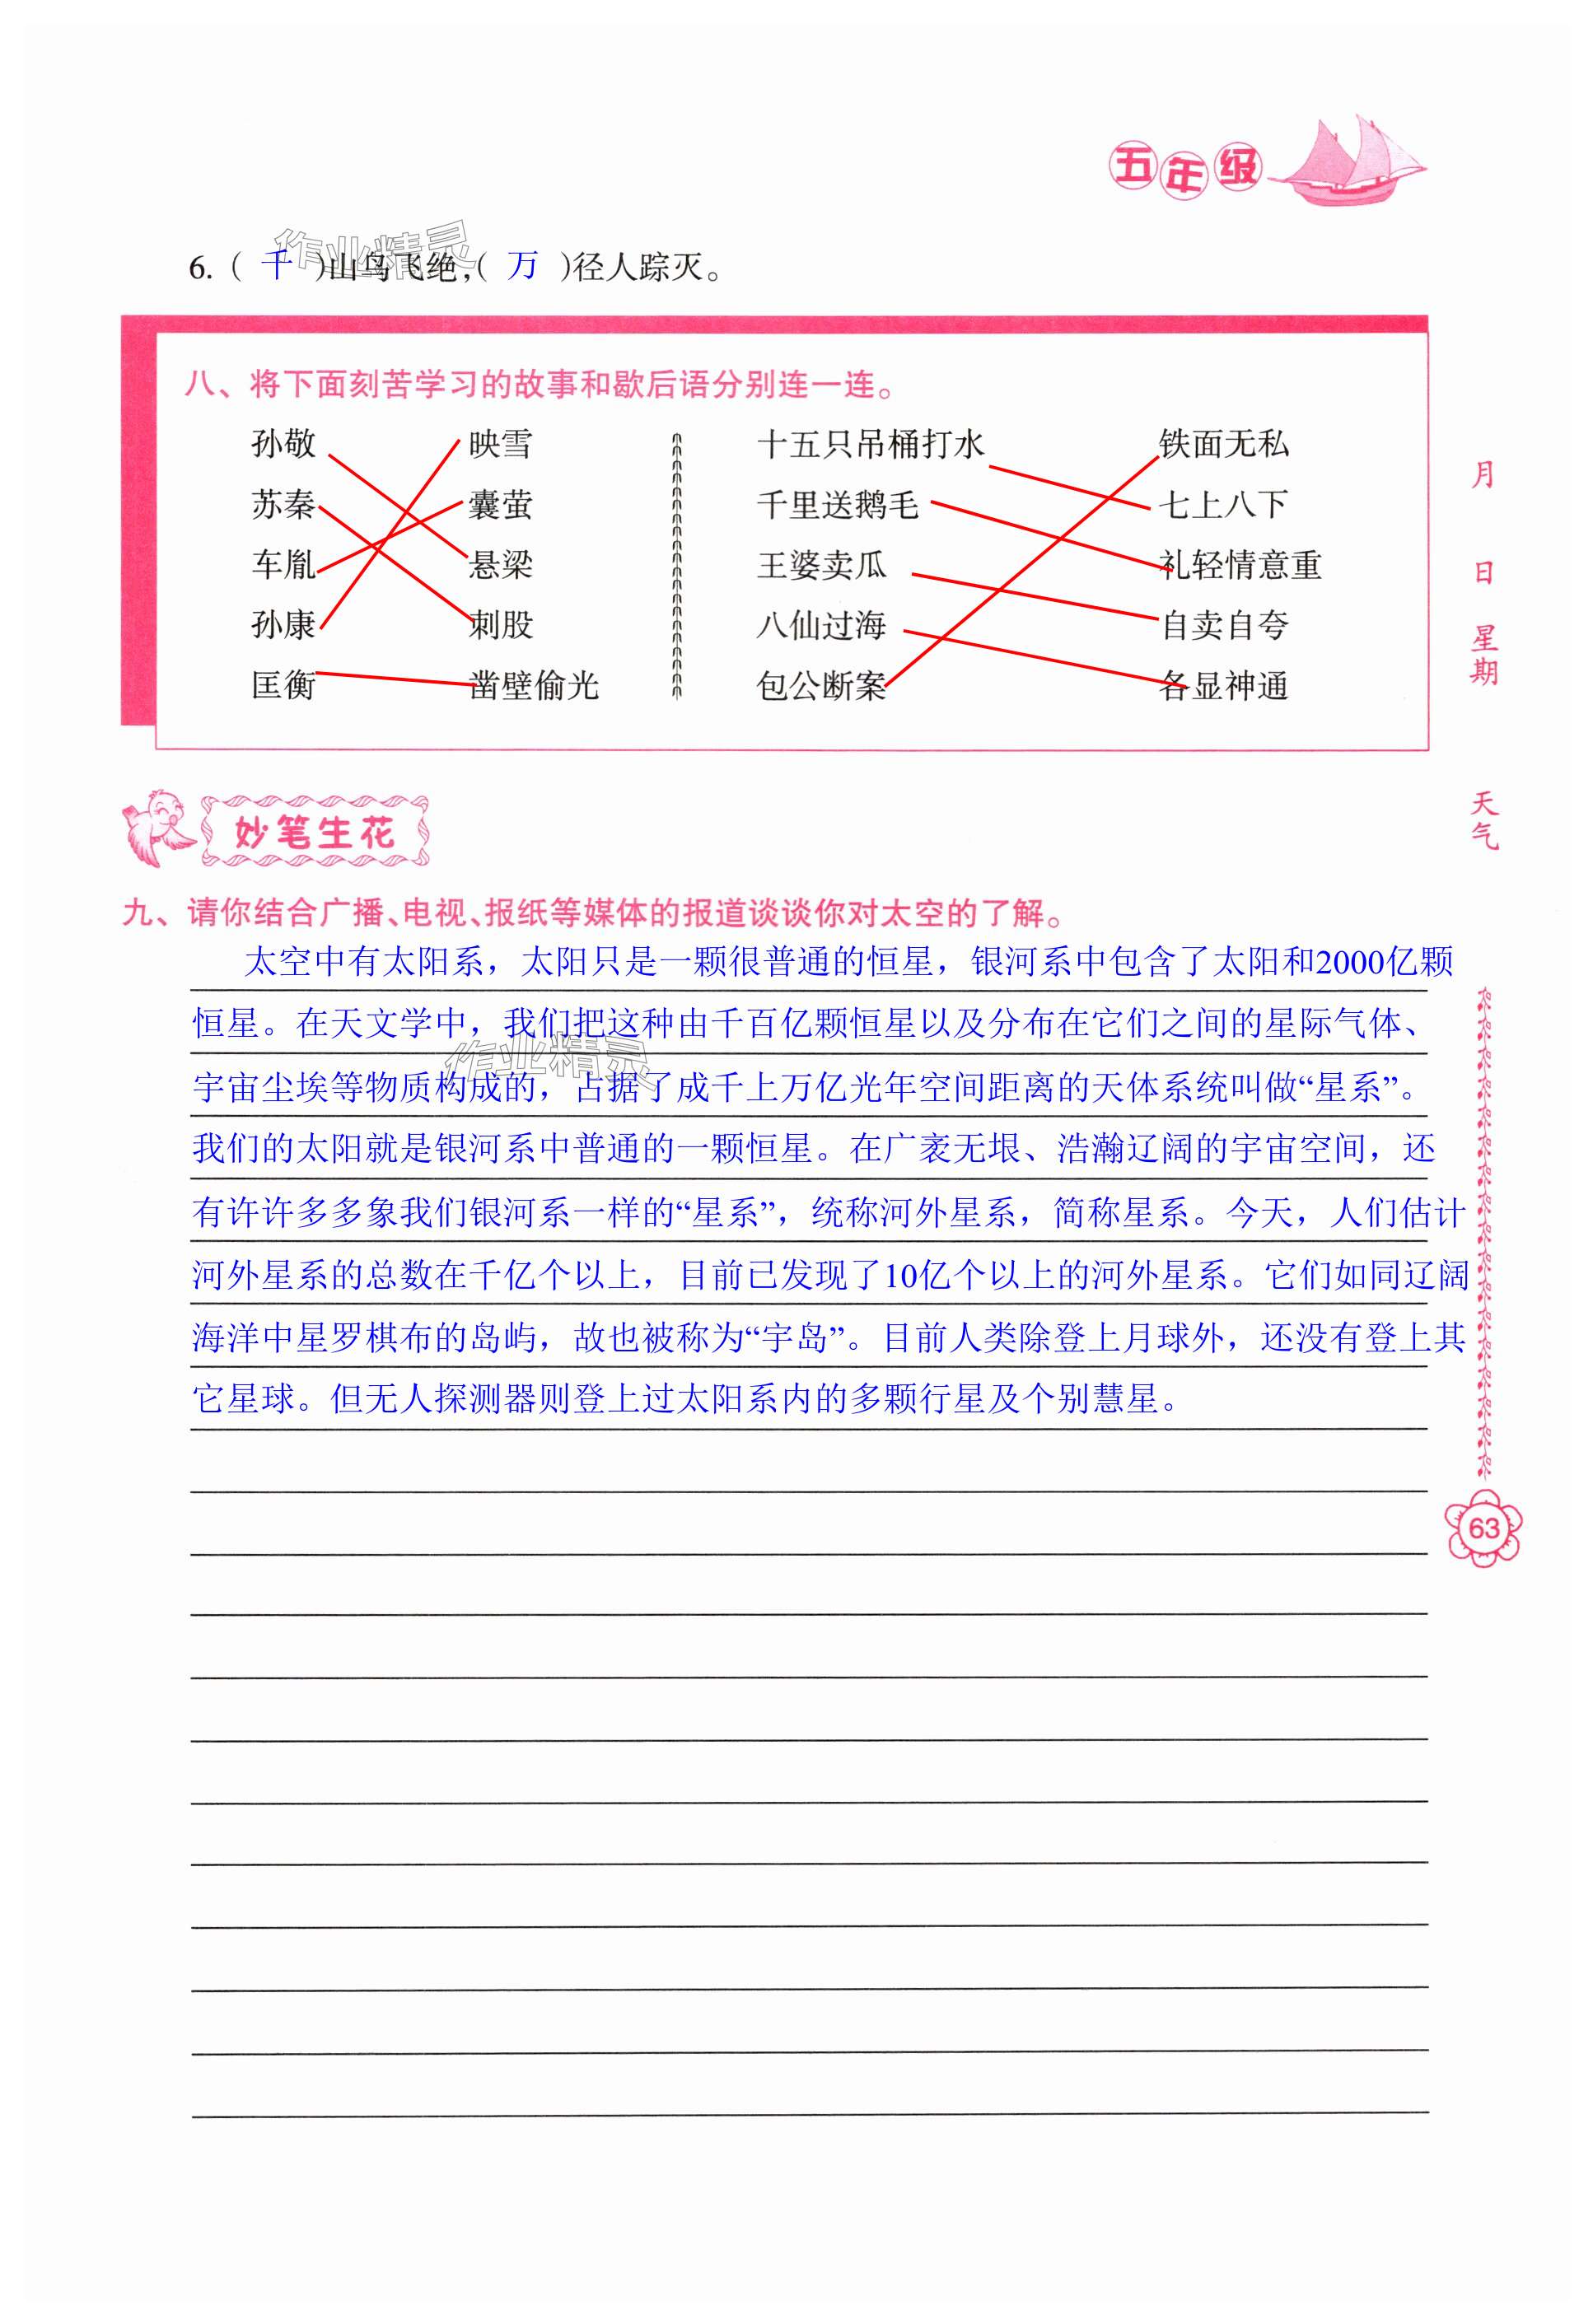 五年级
作业精灵
6. ( 千 )山鸟飞绝,( 万 )径人踪灭。
八、将下面刻苦学习的故事和歇后语分别连一连。
孙敬 映雪 十五只吊桶打水 铁面无私
苏秦 囊萤 千里送鹅毛 七上八下
车胤 悬梁 王婆卖瓜 礼轻情意重
孙康 刺股 八仙过海 自卖自夸
匡衡 凿壁偷光 包公断案 各显神通
月
日
星期
天气
妙笔生花
九、请你结合广播、电视、报纸等媒体的报道谈谈你对太空的了解。
太空中有太阳系，太阳只是一颗很普通的恒星，银河系中包含了太阳和2000亿颗
恒星。在天文学中，我们把这种由千百亿颗恒星以及分布在它们之间的星际气体、
作业精灵
宇宙尘埃等物质构成的，占据了成千上万亿光年空间距离的天体系统叫做“星系”。
我们的太阳就是银河系中普通的一颗恒星。在广袤无垠、浩瀚辽阔的宇宙空间，还
有许许多多象我们银河系一样的“星系”，统称河外星系，简称星系。今天，人们估计
河外星系的总数在千亿个以上，目前已发现了10亿个以上的河外星系。它们如同辽阔
海洋中星罗棋布的岛屿，故也被称为“宇岛”。目前人类除登上月球外，还没有登上其
它星球。但无人探测器则登上过太阳系内的多颗行星及个别慧星。
63